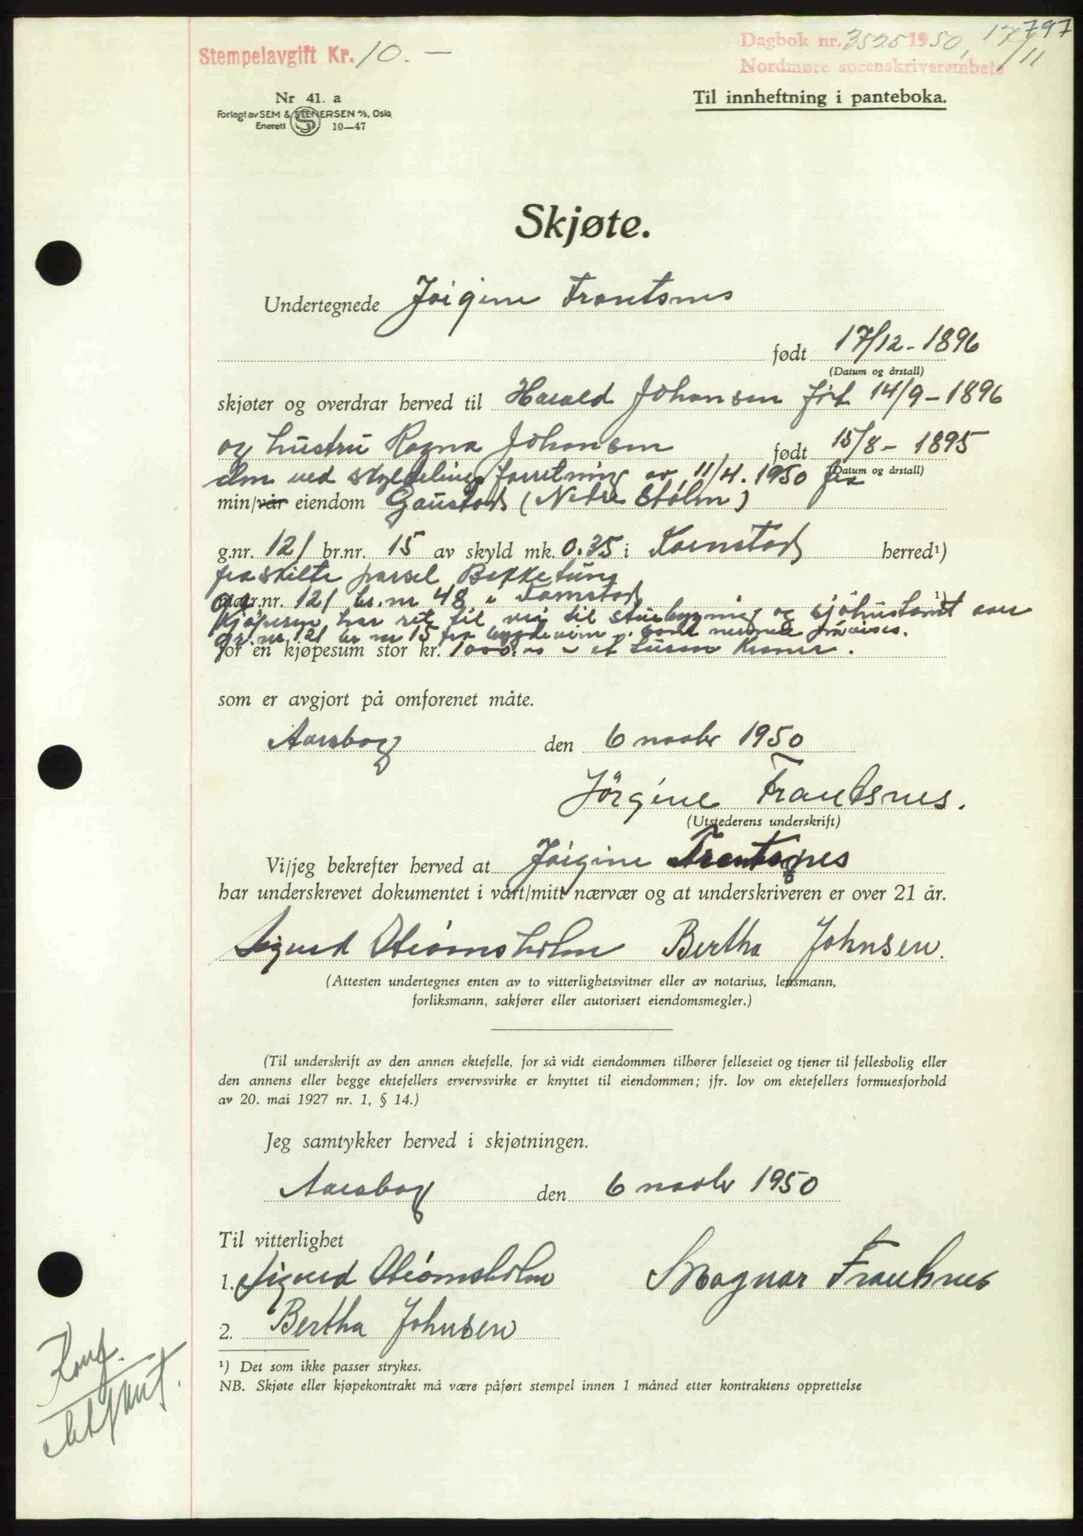 797
Stempelavgift Kr. 10.-
Dagbok nr. 3525 1950, 17/11
Nordmøre sorenskriverembete
Nr 41. a
Forlagt av SEM & STENERSEN A/S, Oslo
Enerett 10—47
Til innheftning i panteboka.
Skjøte.
Undertegnede Jørgine Frantsnes
født 17/12 - 1896
(Datum og årstall)
skjøter og overdrar herved til Harald Johansen født 14/9 - 1896
og hustru Ragna Johansen født 15/8 - 1895
(Datum og årstall)
den ved skyldelings forretning av 11/4. 1950 fra
min/vår eiendom Gaustad (Nedre Stolm)
g.nr. 121 br.nr. 15 av skyld mk. 0.35 i Kornstad herred¹)
fraskilte parsel Bekketung
gr.nr. 121 br.nr 48 i Kornstad ¹)
Kjøperen har rett til vei til stuebygning og sjøhustomt over
gr.nr. 121 br nr 15 fra bygdeveien
for en kjøpesum stor kr. 1000.00 - et tusen kroner.
som er avgjort på omforenet måte.
den 6 novbr 1950
Jörgine Frantsnes.
(Utstederens underskrift)
Vi/jeg bekrefter herved at Jørgine Frantsnes
har underskrevet dokumentet i vårt/mitt nærvær og at underskriveren er over 21 år.
Sigurd Strømsholm Bertha Johnsen.
(Attesten undertegnes enten av to vitterlighetsvitner eller av notarius, lensmann,
forliksmann, sakfører eller autorisert eiendomsmegler.)
(Til underskrift av den annen ektefelle, for så vidt eiendommen tilhører felleseiet og tjener til fellesbolig eller
den annens eller begge ektefellers ervervsvirke er knyttet til eiendommen; jfr. lov om ektefellers formuesforhold
av 20. mai 1927 nr. 1, § 14.)
Jeg samtykker herved i skjøtningen.
den 6 novbr 1950
Til vitterlighet
1. Sigurd Strømsholm Magnar Frantsnes
2. Bertha Johnsen
¹) Det som ikke passer strykes.
NB. Skjøte eller kjøpekontrakt må være påført stempel innen 1 måned etter kontraktens opprettelse